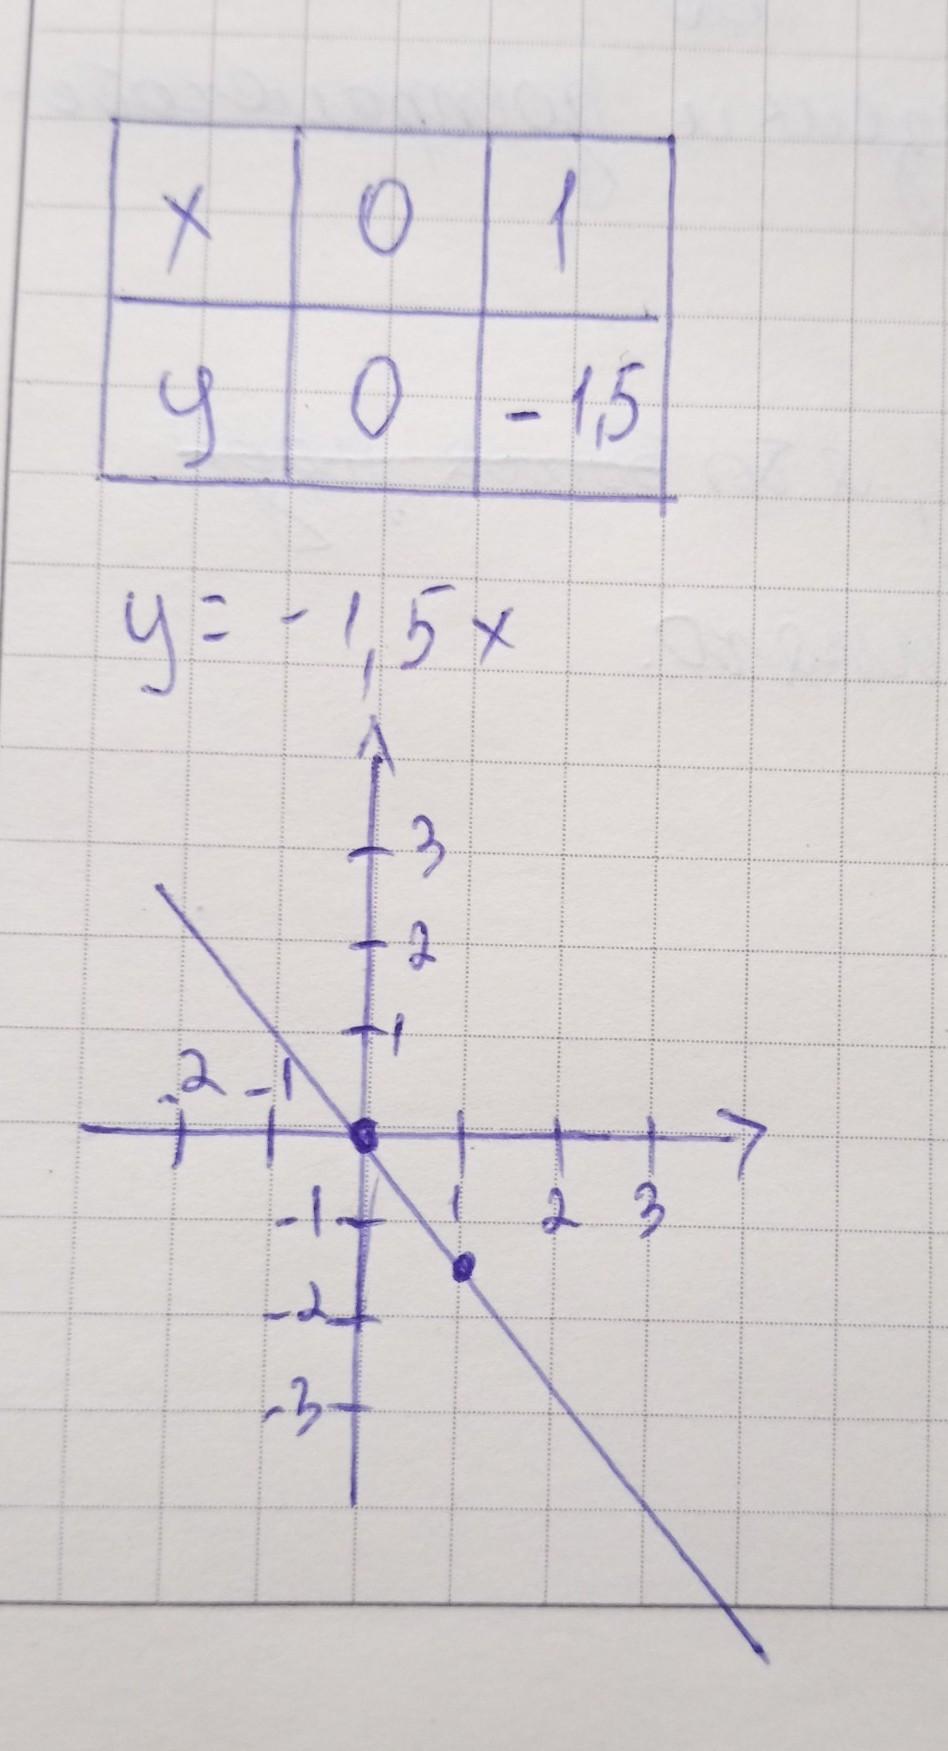 x 0 1
y 0 -1,5
y = -1,5x
3
2
1
-2 -1
1 2 3
-1
-2
-3